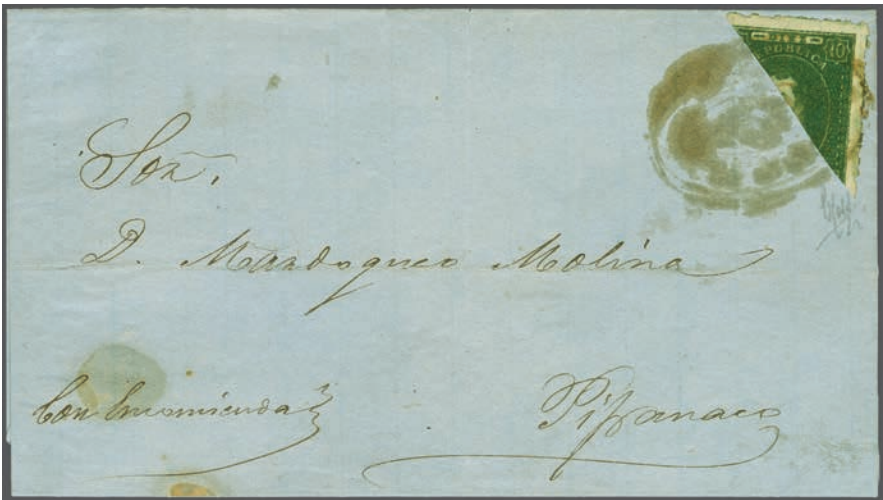 PUBLICA
10
Sor.
D. Mardoqueo Molina
Con Encomienda
Pipanaco